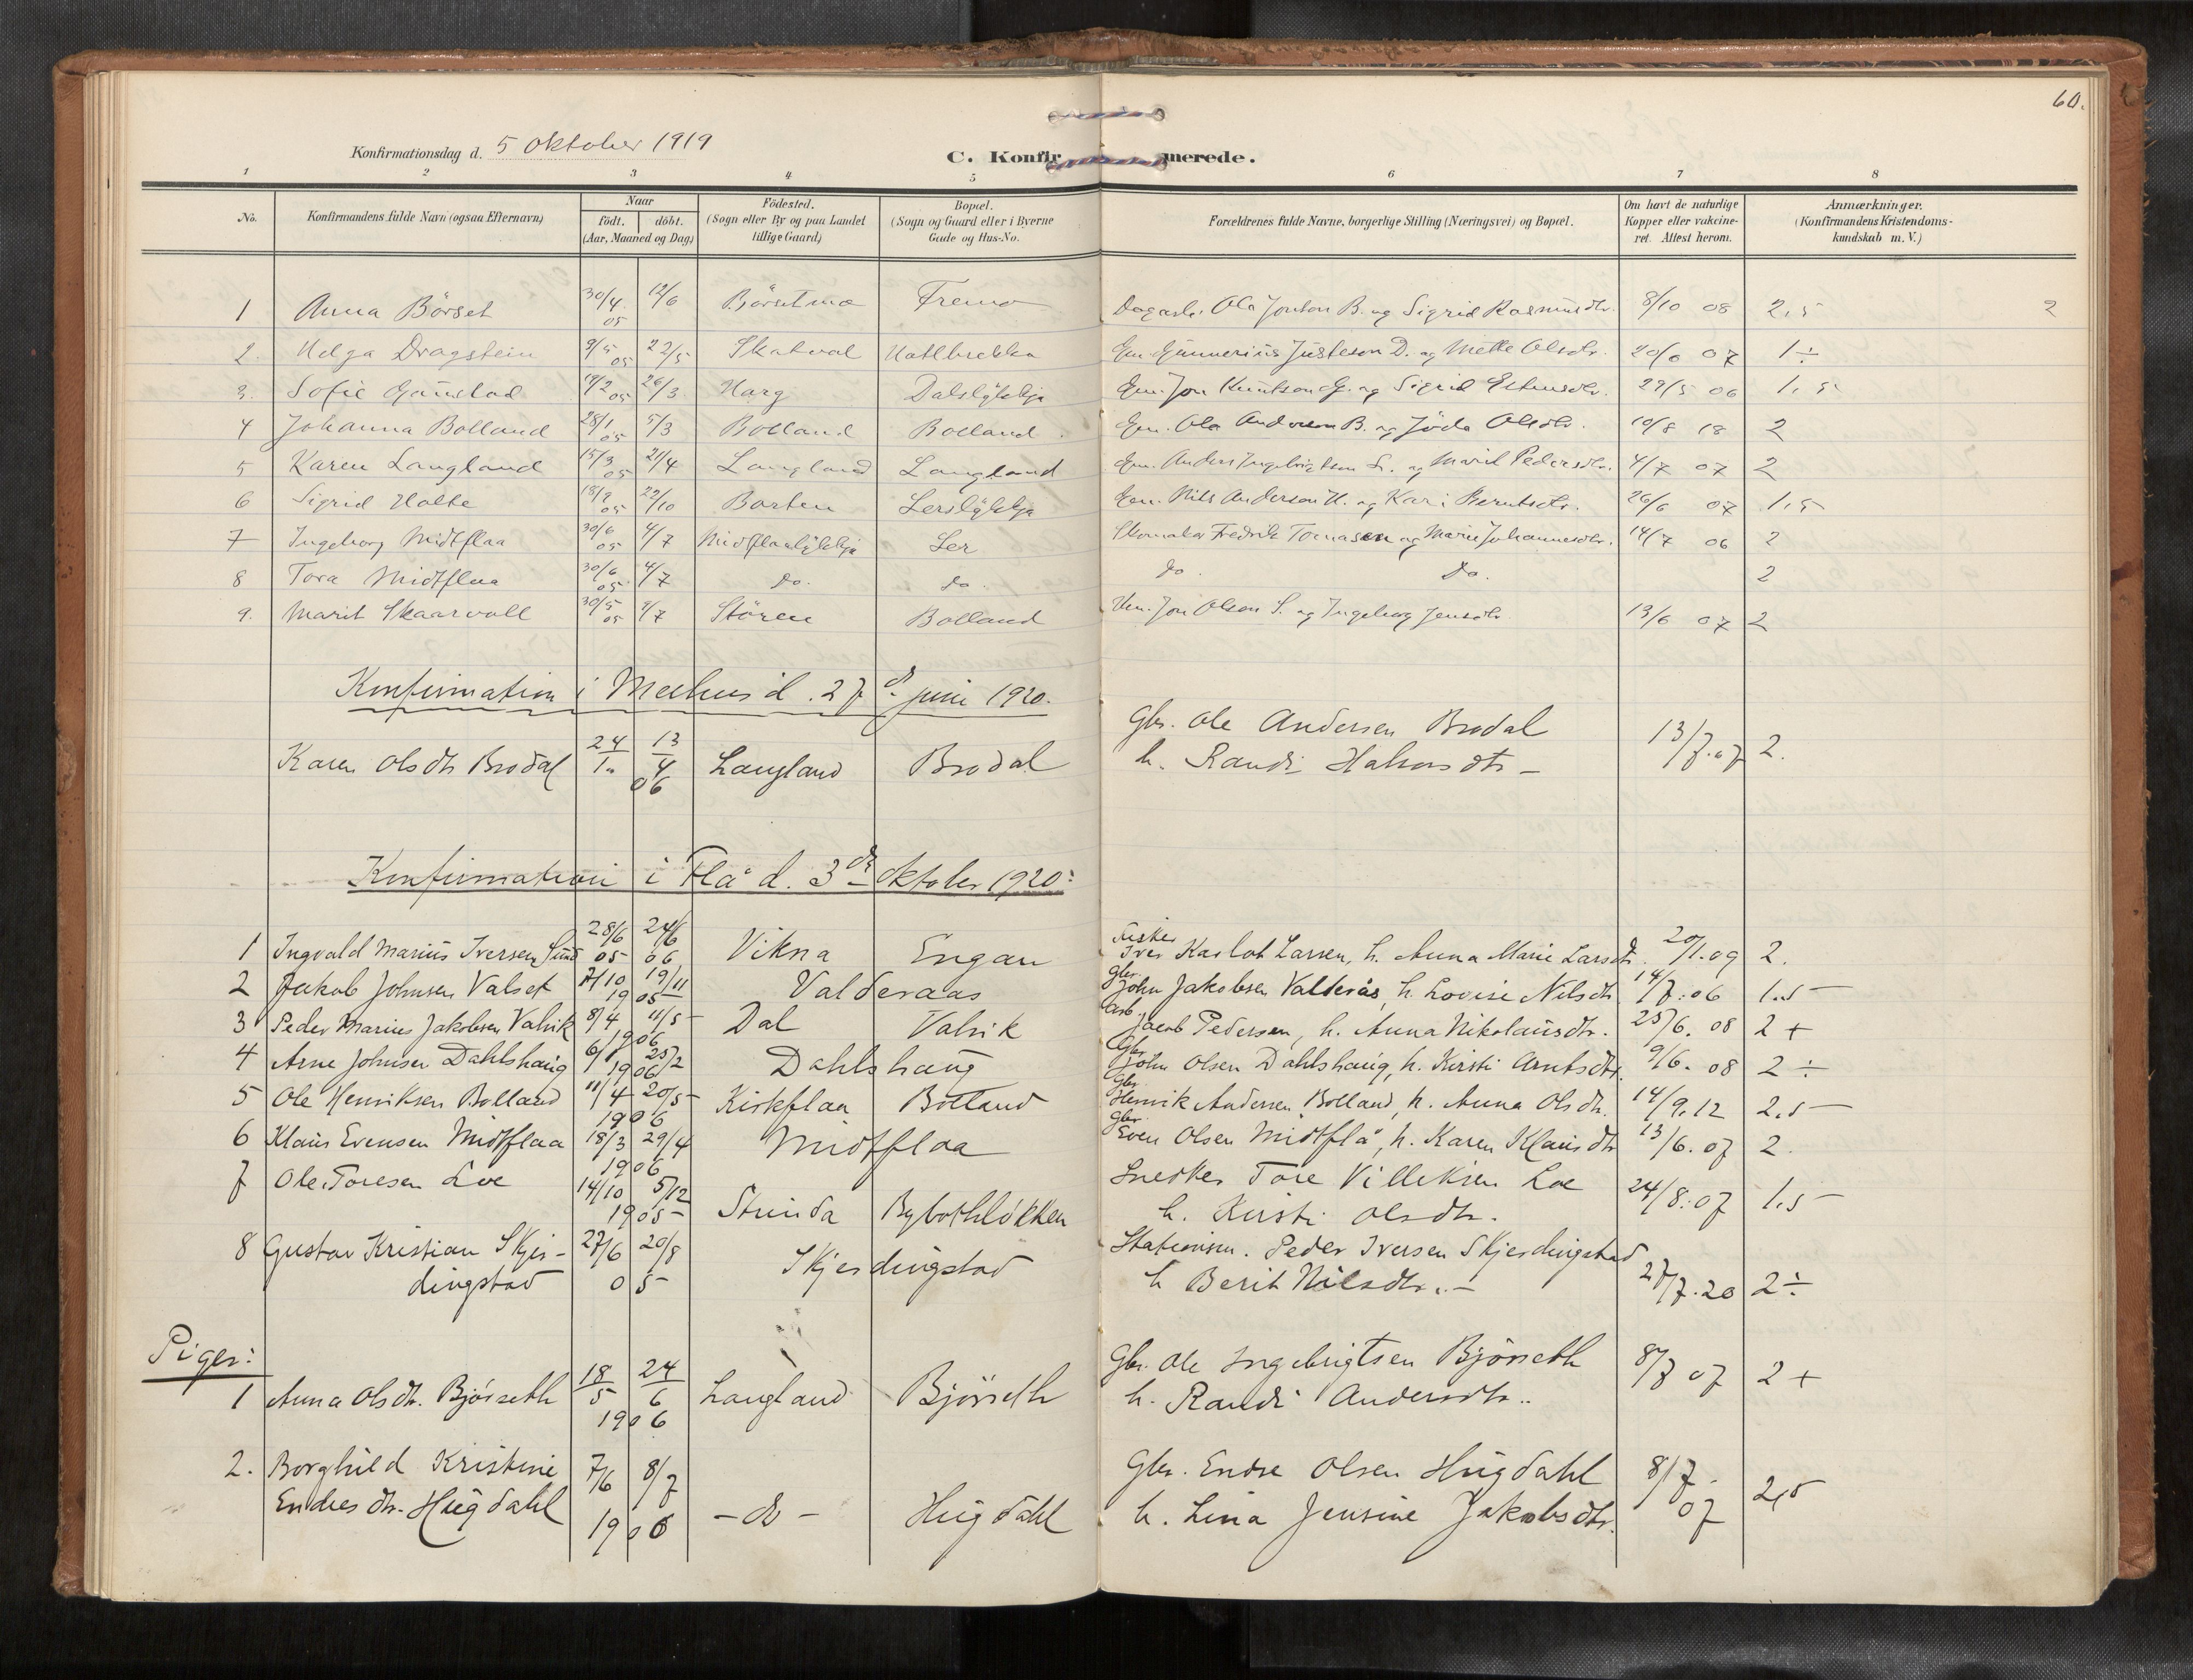 60.
Konfirmationsdag d. 5 Oktober 1919
C. Konfirmerede.
1 2 3 4 5 6 7 8
No. Konfirmandens fulde Navn (ogsaa Efternavn) Naar Födested. Bopæl. Forældrenes fulde Navne, borgerlige Stilling (Næringsvei) og Bopæl. Om havt de naturlige Anmærkninger.
födt. döbt. (Sogn eller By og paa Landet (Sogn og Gaard eller i Byerne Kopper eller vakcine- (Konfirmandens Kristendoms-
(Aar, Maaned og Dag) tillige Gaard) Gade og Hus-No. ret. Attest herom. kundskab m. V.)
1 Anna Börset 30/4 05 12/6 Börsetmo Fremo Dagarb. Ola Jonson B. og Sigrid Rasmusdtr. 8/10 08 2,5 2
2. Helga Dragstein 9/5 05 22/5 Skatval Hatlbrekka Gm. Gunnerius Justeson D. og Mette Olsdtr. 20/6 07 1÷
3. Sofie Gaustad 19/2 05 26/3 Harg Dalslykkja Gm. Jon Knutson G. og Sigrid Estensdtr. 29/5 06 1,5
4 Johanna Bolland 28/1 05 5/3 Bolland Bolland Gm. Ola Anderson B. og Jöda Olsdtr. 10/8 18 2
5 Karen Langland 15/3 05 21/4 Langland Langland Gm. Anders Ingebrigtson L. og Marit Pedersdtr. 4/7 07 2
6 Sigrid Holte 18/9 05 22/10 Borten Lerslykkja Gm. Nils Anderson H. og Kari Berntsdtr. 26/6 07 1,5
7 Ingeborg Midtflaa 30/6 05 4/7 Midflaalykkja Ler Skomaker Fredrik Tomasen og Marie Johannesdtr. 14/7 06 2
8 Tora Midtflaa 30/6 05 4/7 do. do. do. do. 2
9. Marit Skaarvoll 30/5 05 9/7 Stören Bolland Um. Jon Olson S. og Ingeborg Jensdtr. 13/6 07 2
Konfirmation i Melhus d. 27de juni 1920.
Karen Olsdtr Brodal 24/1 13/4 06 Langland Brodal Gbr. Ole Andersen Brodal 13/7.07 2.
h. Randi Halvorsdtr –
Konfirmation i Flå d. 3die Oktober 1920:
1 Ingvald Marius Iversen Sund 28/6 05 24/6 06 Vikna Engan Fisker Iver Karlot Larsen, h. Anna Marie Larsdtr. 20/1.09 2.
2 Jakob Johnsen Valset 7/10 19/11 1905 Valderaas Gbr. John Jakobsen Valderås, h. Lovise Nilsdtr 14/7.06 1.5
3 Peder Marius Jakobsen Valvik 8/4 11/5 1906 Dal Valvik Arb. Jacob Pedersen, h. Anna Nikolausdtr. 25/6. 08 2 +
4 Arne Johnsen Dahlshaug 6/1 25/2 1906 Dahlshaug Gbr. John Olsen Dahlshaug, h. Kirsti Arntsdtr. 9/6. 08 2 ÷
5 Ole Henriksen Bolland 11/4 20/5 1906 Kirkflaa Bolland Gbr. Henrik Andersen Bolland, h. Anna Olsdtr. 14/9.12 2,5
6 Klaus Evensen Midtflaa 18/3 29/4 1906 Midtflaa Gbr. Even Olsen Midtflå, h. Karen Klausdtr 13/6.07 2.
7 Ole Toresen Loe 14/10 5/12 1905 Strinda Bybothløkken Snedker Tore Villeksen Loe 24/8.07 1.5
h. Kirsti Olsdtr.
8 Gustav Kristian Skjer- 27/6 20/8 Skjerdingstad Stationsm. Peder Iversen Skjerdingstad 27/7.20 2÷
dingstad 05 h Berit Nilsdtr. –
Piger:
1 Anna Olsdtr. Bjørseth 18/5 24/6 1906 Langland Bjørseth Gbr. Ole Ingebrigtsen Bjørseth 8/7 07 2 +
h. Randi Andersdtr..
2. Borghild Kristine 7/6 8/7 Gbr. Endre Olsen Hugdahl 8/7.
Endresdtr. Hugdahl 1906 – do – Hugdahl h. Lina Jensine Jakobsdtr. 07 2,5